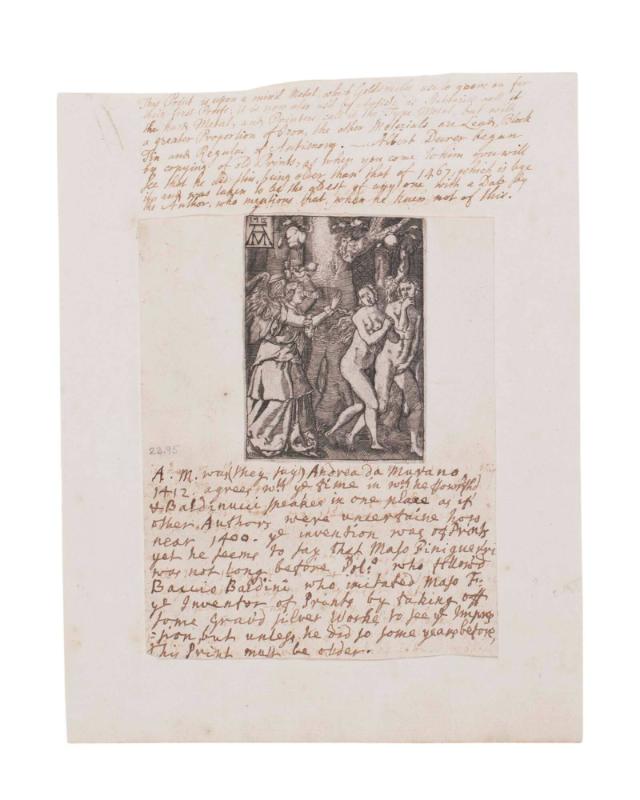 This Print is upon a mixd Metal which Goldsmiths use to grave on for
their first Proofs; it is now also us'd
the hard Metal, and Printers call it the Type Metal, but with
a greater Proportion of Iron, the other Materials are Lead, Block
Tin and Regulus of Antimony. Albert Deurer began
by copying of old Prints, as when you come to him you will
see that he did this, being older than that of 1467, which is bye
the Author, who mentions that, when he knew not of this.
A. M. was (they say) Andrea da Murano,
1412 agrees wth ye time in wch he flourish'd
& Baldinucci speakes in one place as if
other Authors were uncertaine how
near 1400. ye invention was of Prints
yet he seems to say that Maso Finiguerra
was not long before Pol:o who follow'd
Baccio Baldini who imitated Maso F.
ye Inventor of Prints by taking off
some Grav'd Silver Worke to see ye Impres
=sion but unless he did so some years before
This Print must be older.
22.95